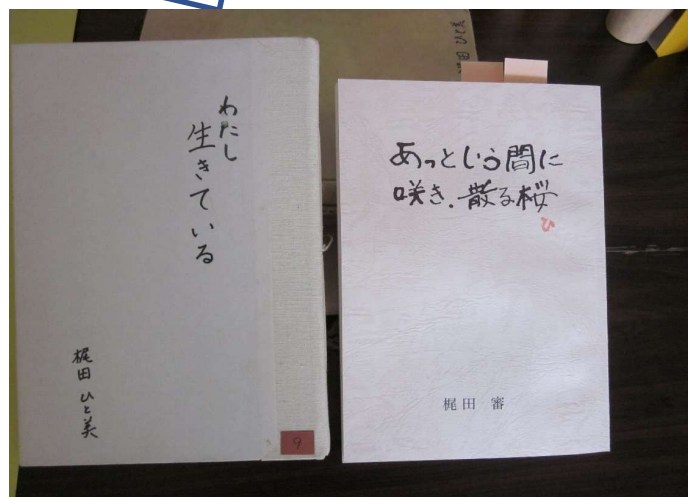 わたし
生きている
梶田 ひと美
9
あっという間に
咲き.散る桜
ひ
梶田 審